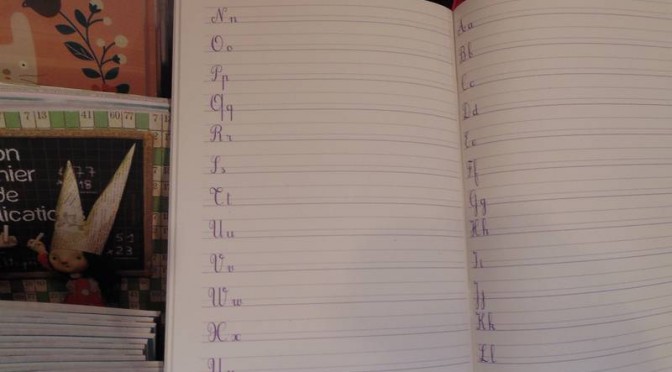 7 13 41 60 77
on
hier
de
lication
51
23
N n
O o
P p
Q q
R r
S s
T t
U u
V v
W w
X x
A a
B b
C c
D d
E e
F f
G g
H h
I i
J j
K k
L l